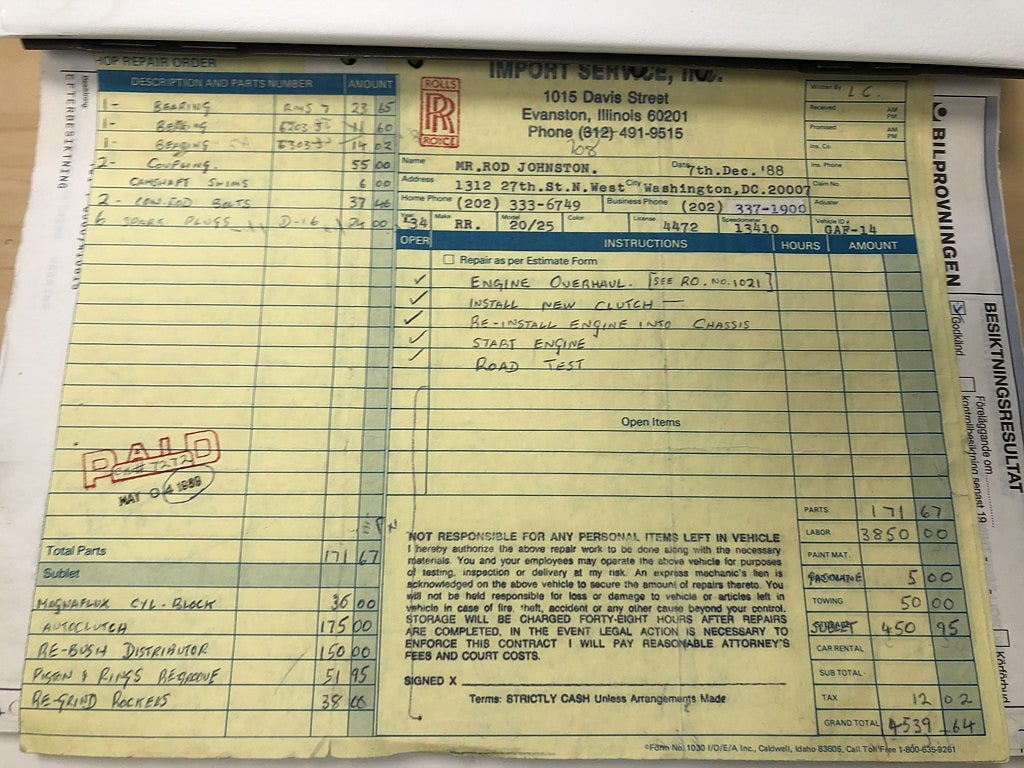 HOP REPAIR ORDER
DESCRIPTION AND PARTS NUMBER AMOUNT
1- BEARING RMS 7 23 65
1- BEARING 60
1- BEARING 14 02
2- COUPLING. 55 00
CAMSHAFT SHIMS 6 00
2- CON-ROD BOLTS 37 46
6 SPARK PLUGS D-16 24 00
PAID
MAY 04 1989
Total Parts 171 67
Sublet
MAGNAFLUX CYL. BLOCK 36 00
AUTOCLUTCH 175 00
RE-BUSH DISTRIBUTOR 150 00
PISTON & RINGS REGROOVE 51 95
RE-GRIND ROCKERS 38 00
ROLLS
RR
ROYCE
IMPORT SERVICE, INC.
1015 Davis Street
Evanston, Illinois 60201
Phone (312) 491-9515
708
Written By L C.
Received AM PM
Promised AM PM
Ins. Co.
Ins. Phone
Claim No.
Adjuster
Name MR.ROD JOHNSTON. Date 7th.Dec.'88
Address 1312 27th.St.N.West City Washington,DC.20007
Home Phone (202) 333-6749 Business Phone (202) 337-1900
'34 Make RR. Model 20/25 Color License 4472 Speedometer 13410 Vehicle ID # GAF-14
OPER INSTRUCTIONS HOURS AMOUNT
Repair as per Estimate Form
✓ ENGINE OVERHAUL. [SEE RO. NO. 1021]
✓ INSTALL NEW CLUTCH —
✓ RE-INSTALL ENGINE INTO CHASSIS
✓ START ENGINE
✓ ROAD TEST
Open Items
NOT RESPONSIBLE FOR ANY PERSONAL ITEMS LEFT IN VEHICLE
I hereby authorize the above repair work to be done along with the necessary
materials. You and your employees may operate the above vehicle for purposes
of testing, inspection or delivery at my risk. An express mechanic's lien is
acknowledged on the above vehicle to secure the amount of repairs thereto. You
will not be held responsible for loss or damage to vehicle or articles left in
vehicle in case of fire, theft, accident or any other cause beyond your control.
STORAGE WILL BE CHARGED FORTY-EIGHT HOURS AFTER REPAIRS
ARE COMPLETED. IN THE EVENT LEGAL ACTION IS NECESSARY TO
ENFORCE THIS CONTRACT I WILL PAY REASONABLE ATTORNEY'S
FEES AND COURT COSTS.
SIGNED X
Terms: STRICTLY CASH Unless Arrangements Made
PARTS 171 67
LABOR 3850 00
PAINT MAT.
GASOLINE 5 00
TOWING 50 00
SUBLET 450 95
CAR RENTAL
SUB TOTAL
TAX 12 02
GRAND TOTAL 4539 64
©Form No. 1030 I/D/E/A Inc., Caldwell, Idaho 83605, Call Toll Free 1-800-635-9261
EFTERBESIKTNING
BILPROVNINGEN
BESIKTNINGSRESULTAT
Godkänd
Föreläggande om
kontrollbesiktning senast 19
Körförbud